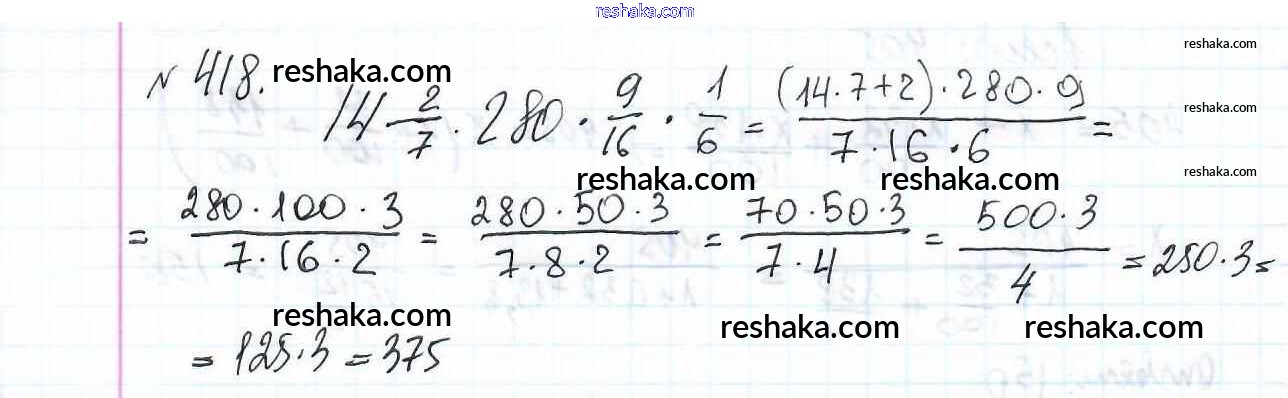 reshaka.com
№ 418. reshaka.com reshaka.com
14 2/7 · 280 · 9/16 · 1/6 = (14·7+2)·280·9 / 7·16·6 =
reshaka.com
reshaka.com reshaka.com reshaka.com
= 280·100·3 / 7·16·2 = 280·50·3 / 7·8·2 = 70·50·3 / 7·4 = 500·3 / 4 = 250·3 =
reshaka.com reshaka.com reshaka.com
= 125·3 = 375